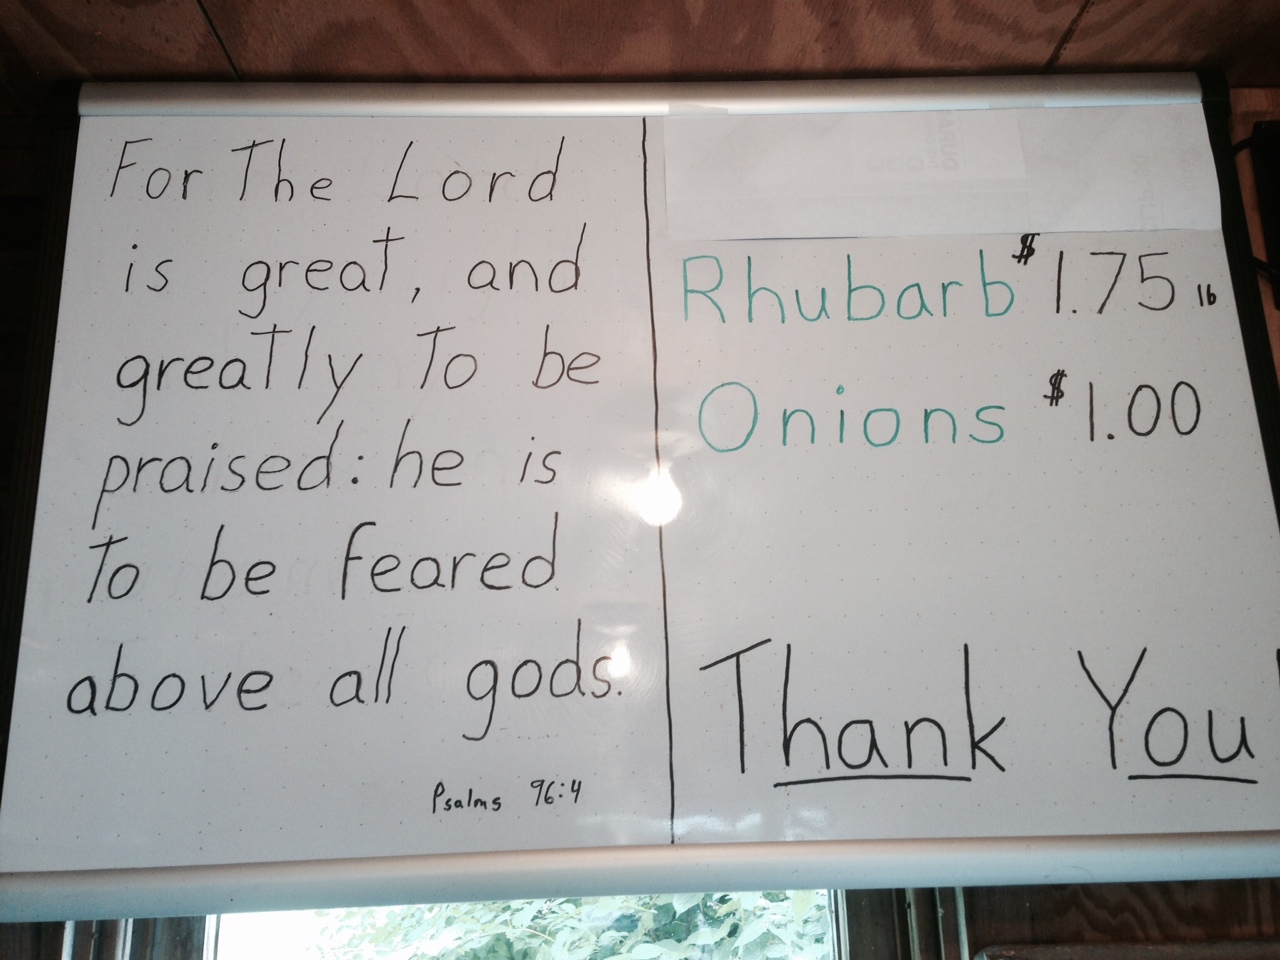 For The Lord
is great, and
greatly To be
praised: he is
To be feared
above all gods.
Psalms 96:4
Rhubarb $1.75 lb
Onions $1.00
Thank You